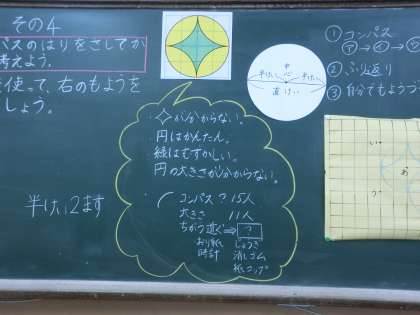 その4
パスのはりをさしてか
考えよう。
使って、右のもようを
しょう。
半けい2ます
がわからない。
円はかんたん。
緑はむずかしい。
円の大きさがわからない。
コンパス?15人
大きさ 11人
ちがう道ぐ⇒?
おり紙 じょうぎ
時計 消しゴム
紙コップ
中心
半けい 半けい
直けい
①コンパス
ア→イ→ウ
②ふり返り
③自分でもようづ
い
あ
う